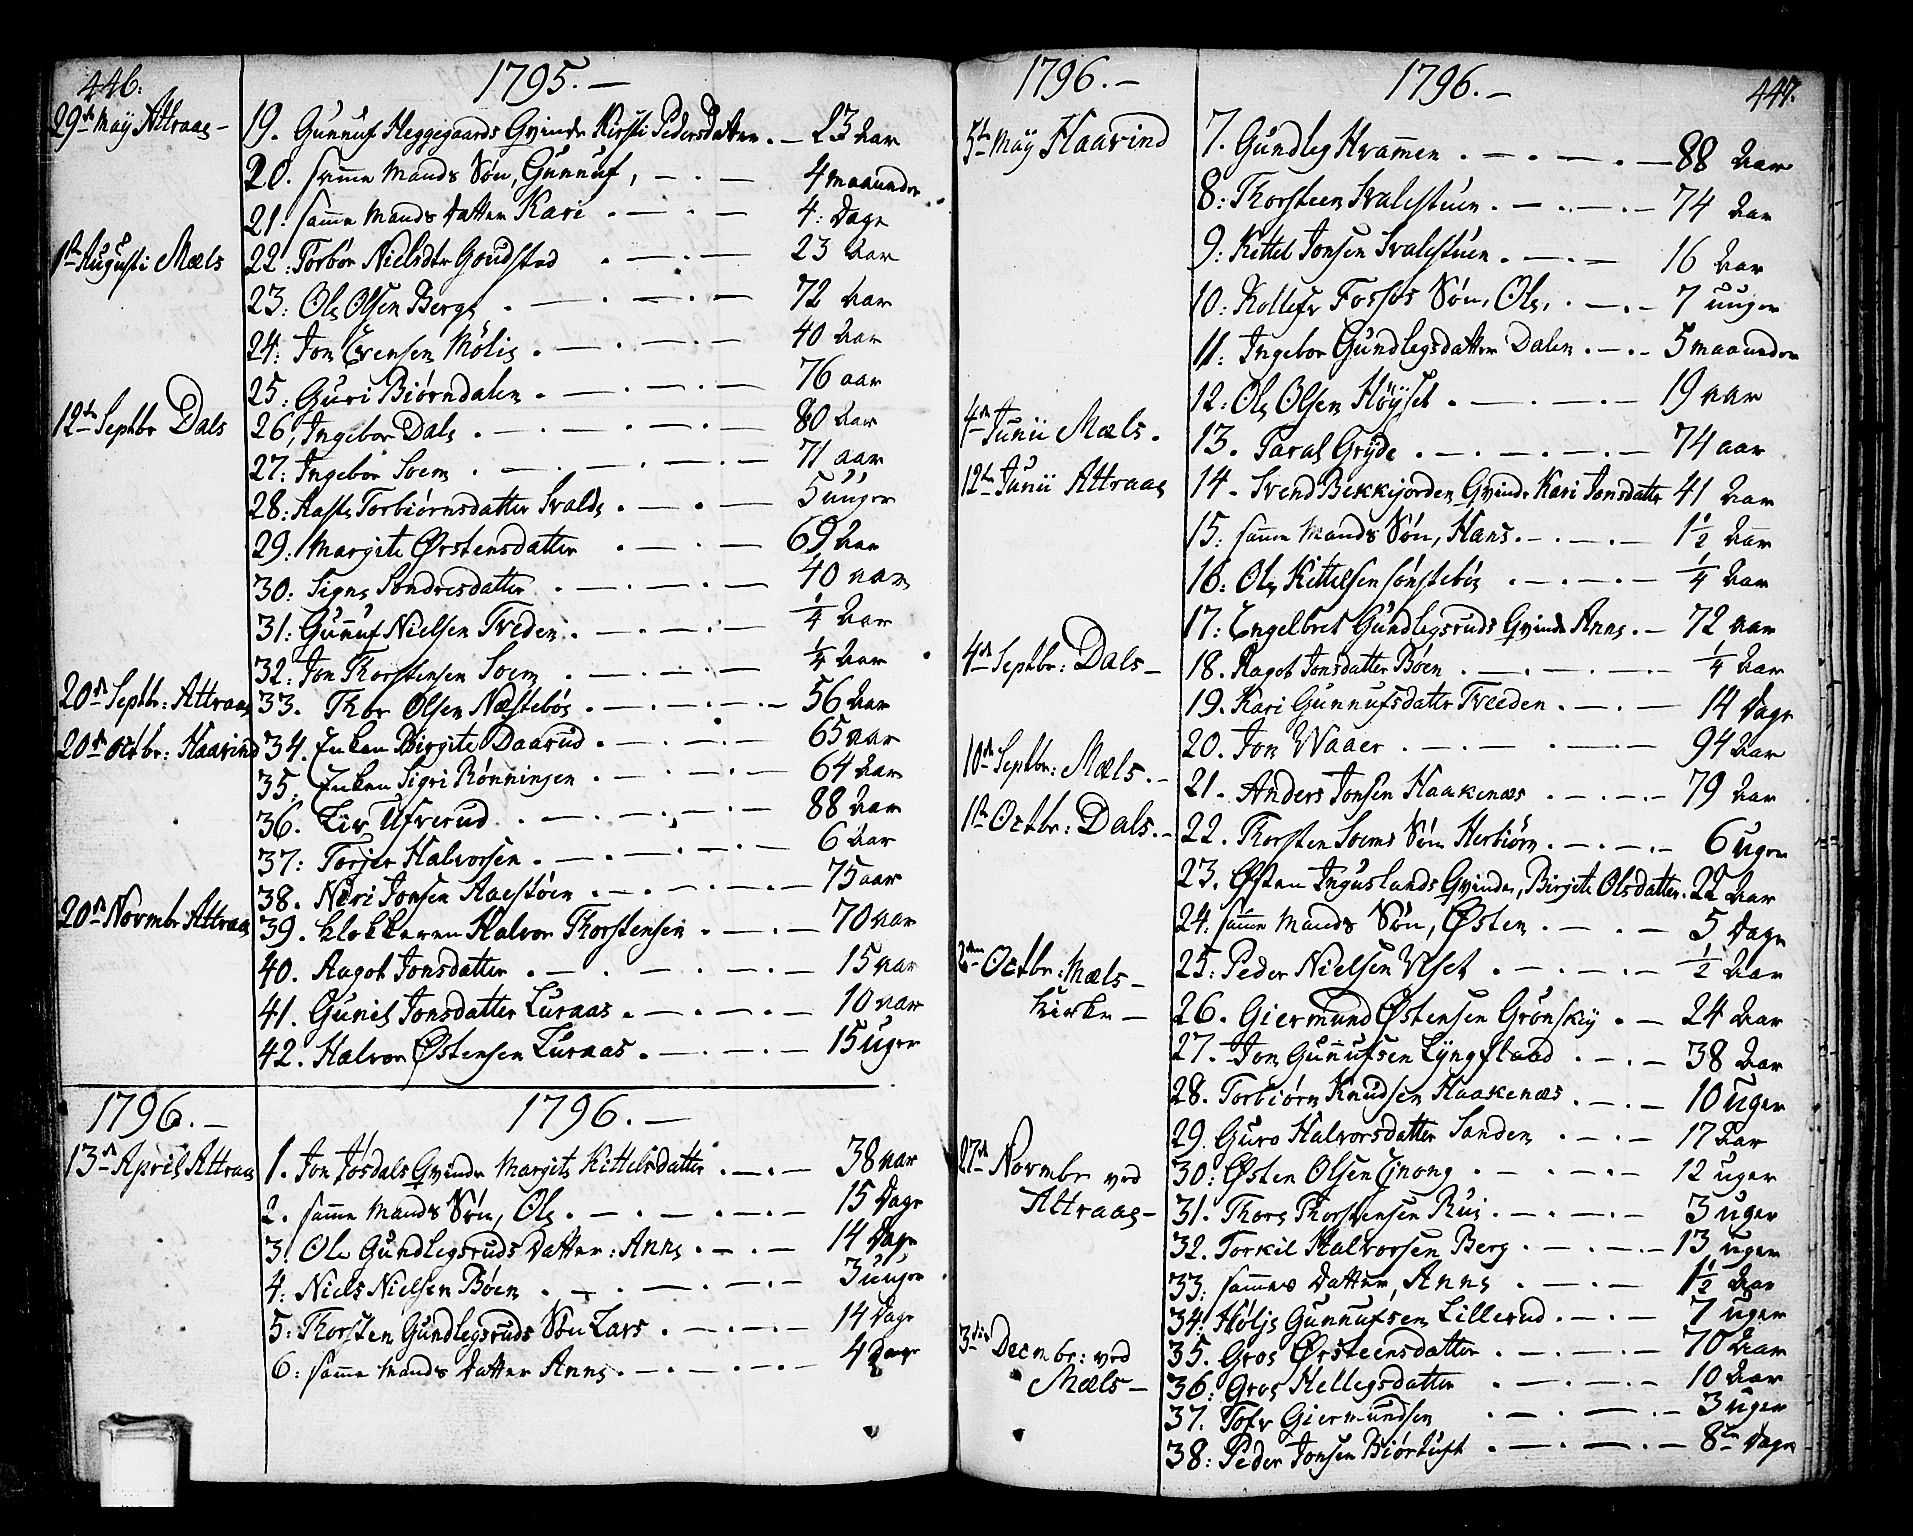 446.
1795.
29de Maÿ Attraae
19. Gunnuf Heggegaards Qvinde Kirsti Pedersdatter. 23 Aar
20. samme Mands Søn, Gunnuf, 4 maaneder
21. samme Mands datter Kari 4. Dage
1ste Augusti Mæls
22. Torbør Nielsdtr Goudstad 23 Aar
23. Ole Olsen Berge 72 Aar
24. Jon Evensen Mölie 40 Aar
25. Guri Biørndalen 76 aar
12te Septbr Dals
26, Ingebor Dale 80 Aar
27. Ingebor Soem 71 aar
28. Aaste Torbiørnsdatter Svalde 5 uuger
29. Margite Ørstensdatter 69 Aar
30. Signe Sondresdatter 40 aar
31. Gunnuf Nielsen Tveden 1/4 Aar
32. Jon Thorstensen Soem 1/4 Aar
20de Septbr: Attraae
33. Thor Olsen Næstebøe 56 Aar
20de Octbr: Haavind
34. Enken Birgite Daarud 65 aar
35. Enken Sigri Rønningen 64 Aar
36. Liv Ufverud 88 Aar
37. Torjer Halvorsen 6 Aar
38. Neri Jonsen Aaestøen 75 aar
20de Novmbr Attraae
39. klokkeren Halvor Thorstensen 70 aar
40. Aagot Jonsdatter 15 aar
41. Gunil Jonsdatter Luraas 10 aar
42. Halvor Østensen Luraas 15 Uger
1796.
1796.
13de April Attraae
1. Jon Jøsdals Qvinde Margite Kittelsdatter 38 aar
2. samme Mands Søn, Ole 15 Dage
3. Ole Gundlegsruds Datter: Anne 14 Dage
4. Niels Nielsen Bøen 3 uuger
5. Thorsten Gundlegsruds Søn Lars 14 Dage
6. samme Mands datter Anne 4 Dage
1796.
1796.
447.
5te Maÿ Haavind
7. Gundleg Kvammen 88 Aar
8. Thorsteen Svalestuen 74 Aar
9. Kittel Jonsen Svalestuen 16 Aar
10. Kollefs Fossøs Søn, Ole, 7 uuger
11. Ingebor Gundlegsdatter Dalen 5 maaneder
12. Ole Olsen Høÿset 19 aar
4de Junii Mæls.
13. Taral Grÿde 74 aar
12te Junii Attraae
14. Svend Bekkjordens Qvinde Kari Jonsdatter 41 Aar
15. samme Mands Søn, Hans 1 1/2 Aar
16. Ole Kittelsen Sønstebøe 1/4 Aar
17. Engelbret Gundlegsruds Qvinde Anne 72 aar
4de Septbr: Dals
18. Aagot Jonsdatter Bøen 1/4 Aar
19. Kari Gunnufsdatter Tveeden 14 Dage
20. Jon Waaer 94 Aar
10de Septbr: Mæls.
21. Anders Jonsen Haakenæs 79 Aar
1ste Octbr: Dals.
22. Thorsten Soems Søn Herbiørn 6 Uger
23. Østen Ingulands Qvinde, Birgite Olsdatter. 22 Aar
24. samme Mands Søn, Østen 5 Dage
2den Octbr: Mæls
kirke
25. Peder Nielsen Veset 1/2 Aar
26. Giermund Østensen Grønskeÿ 24 Aar
27. Jon Gunnufsen Lÿngflaad 38 Aar
28. Torbiørn Knudsen Haakenæs 10 Uger
29. Guro Halvorsdatter Sanden 17 Aar
27de Novmbr ved
Attraae
30. Østen Olsen Einong 12 uger
31. Thore Thorstensen Rui 3 uger
32. Torkil Halvorsen Berg 13 uger
33. sammes datter, Anne 1 1/2 Aar
34. Høljs Gunnufsen Lillerud 7 Uger
3die Decmbr: ved
Mæls
35. Groe Ørsteensdatter 70 Aar
36. Groe Hellegsdatter 10 Aar
37. Tov Giermundsen 3 uger
38. Peder Jonsen Biørtuft 8te Dage